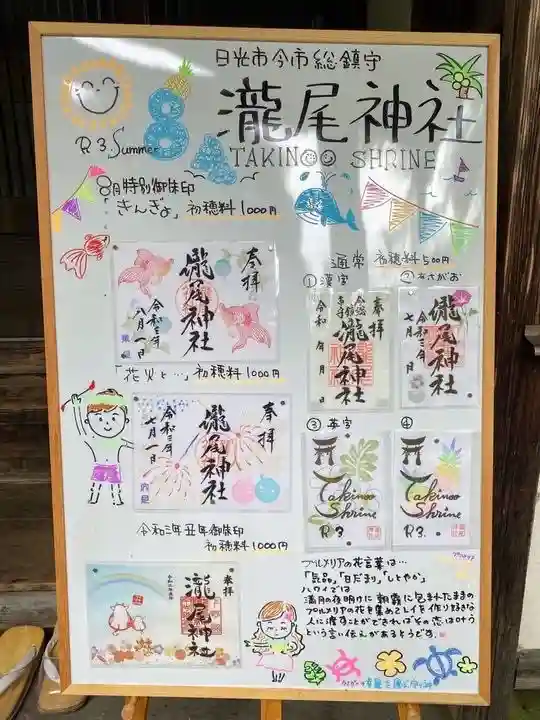 日光市今市総鎮守
瀧尾神社
TAKINOO SHRINE
R3. Summer
8
8月特別御朱印
「きんぎょ」 初穂料1000円
奉拝
瀧尾神社
令和三年
八月一日
「花火と…」 初穂料1000円
奉拝
瀧尾神社
令和三年
七月一日
令和三年丑年御朱印
初穂料1000円
奉拝
瀧尾神社
通常 初穂料500円
①漢字
奉拝
瀧尾神社
令和 年 月 日
②あさがお
奉拝
瀧尾神社
令和三年
七月 日
③英字
Takinoo
Shrine
R3
④
Takinoo
Shrine
R3.
プルメリアの花言葉は…
「気品」「日だまり」「しとやか」
ハワイでは
満月の夜明けに朝霧に包まれたままの
プルメリアの花を集めてレイを作り好きな
人に渡すことができればその恋は叶う
という言い伝えがあるそうです。